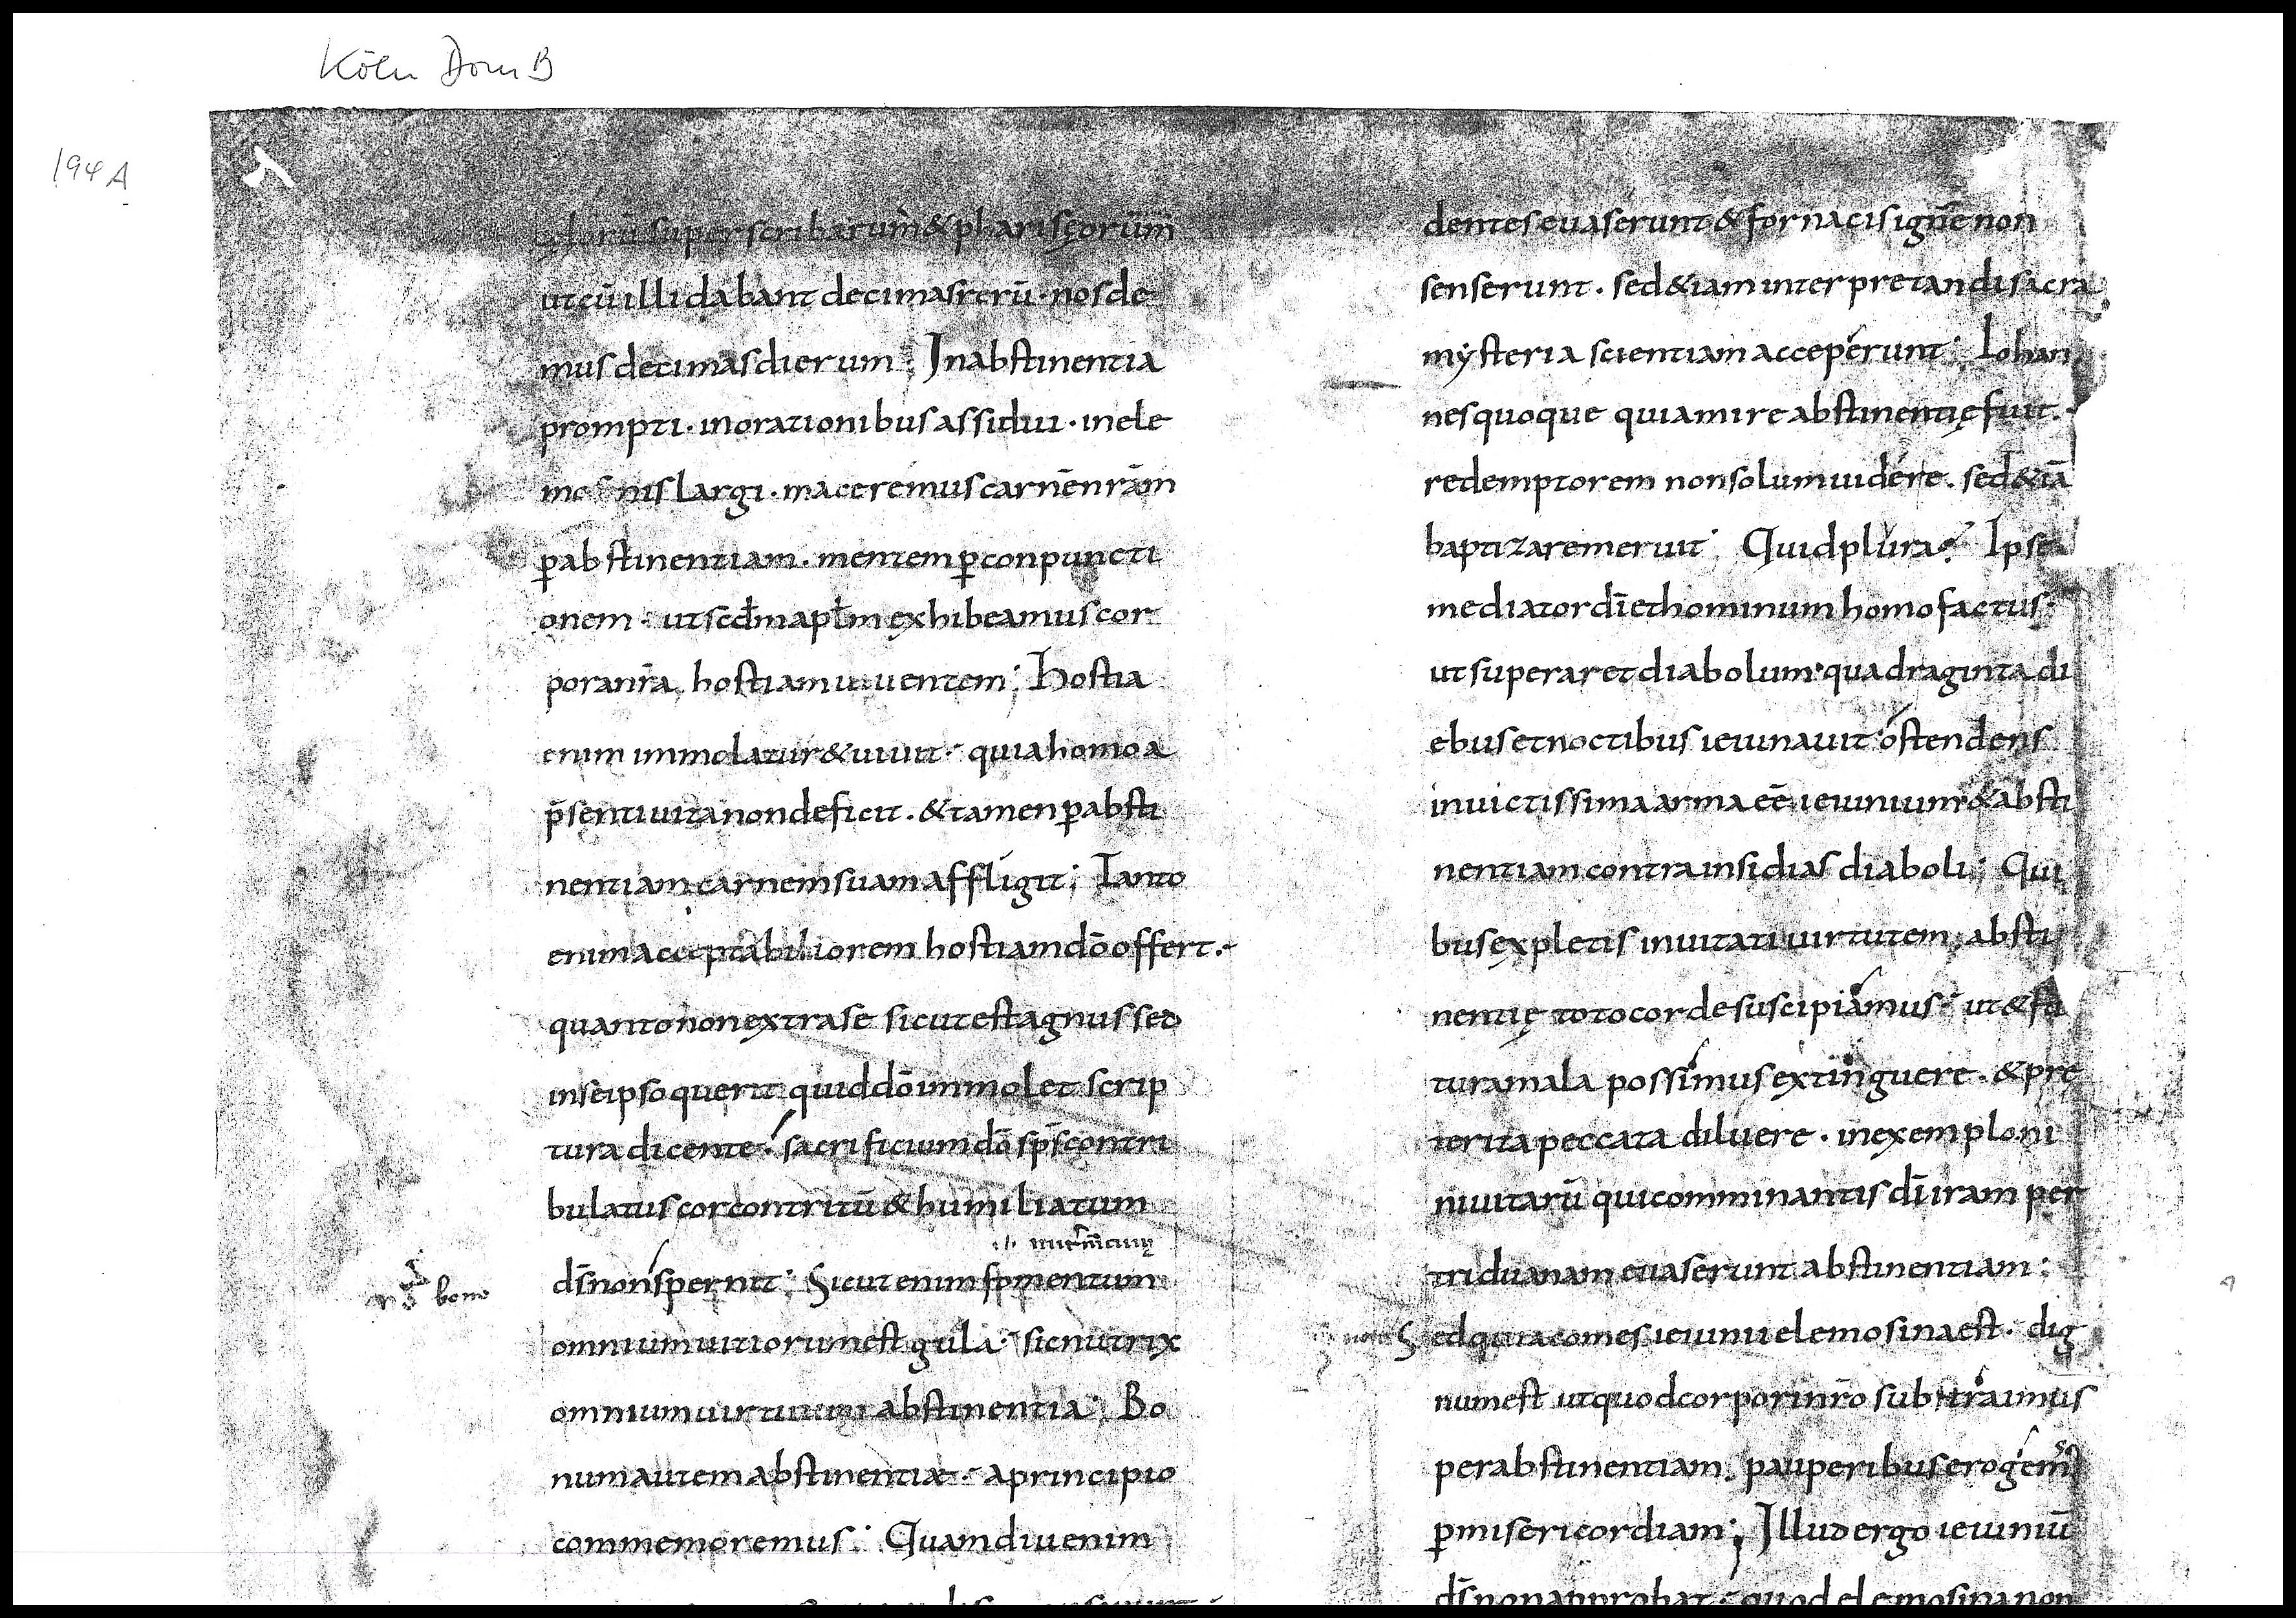 Köln Dom B
194 A
superscribarum & phariseorum
ut cū illi dabant decimas rerū · nos de
mus decimas dierum ; In abstinentia
prompti · in orationibus assidui · in ele
mosinis largi · maceremus carnē nrām
p̄ abstinentiam · mentem p̄ conpuncti
onem · ut scdm̄ apłm exhibeamus cor
pora nrā hostiam uiuentem ; Hostia
enim immolatur & uiuit · quia homo a
p̄senti uita non deficit · & tamen p̄ absti
nentiam carnem suam affligit ; Tanto
enim acceptabiliorem hostiam dō offert ·
quanto non extra se sicut est agnus sed
in seipso querit quid dō immolet scrip
tura dicente · sacrificium dō sp̄s contri
bulatus cor contritū & humiliatum
nutrimentum
nō bono
ds̄ non spernit ; Sicut enim fomentum
omnium uitiorum est gula · sic nutrix
omnium uirtutum abstinentia ; Bo
num autem abstinentiæ · a principio
commemoremus ; Quamdiu enim
dentes euaserunt & fornacis ignē non
senserunt · sed & iam interpretandi sacra
mẏsteria scientiam acceperunt ; Iohan
nes quoque quia mire abstinentię fuit ·
redemptorem non solum uidere · sed & iā
baptizare meruit ; Quid plura ? Ipse
mediator dī et hominum homo factus ·
ut superaret diabolum · quadraginta di
ebus et noctibus ieiunauit · ostendens
inuictissima arma eē ieiunium & absti
nentiam contra insidias diaboli ; Qui
bus expletis inuitati uirtutem absti
nentię toto corde suscipiamus · ut & fu
tura mala possimus extinguere · & pre
terita peccata diluere · in exemplo ni
niuitarū qui comminantis dī iram per
triduanam euaserunt abstinentiam ;
Sed quia comes ieiunii elemosina est · dig
num est ut quod corpori nr̄o subtraimus
per abstinentiam · pauperibus erogem⁹
p̄ misericordiam ; Illud ergo ieiuniū
ds̄ non approbat · quod elemosina non